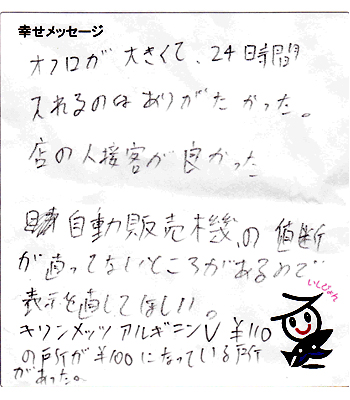 幸せメッセージ
オフロが大きくて、24時間
入れるのはありがたかった。
店の人接客が良かった
自動販売機の値断
が直ってないところがあるので
表示を直してほしい。
キリンメッツアルギニンV ¥110
の所が¥100になっている所
があった。
いしじょん